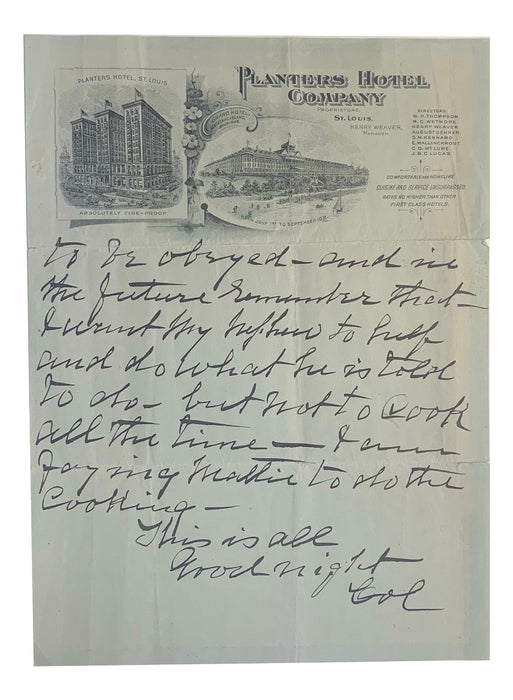 PLANTERS HOTEL, ST. LOUIS.
ABSOLUTELY FIRE-PROOF
GRAND HOTEL,
JULY 1ST TO SEPTEMBER
PLANTERS HOTEL
COMPANY
PROPRIETORS,
ST. LOUIS.
HENRY WEAVER,
MANAGER
DIRECTORS:
W. H. THOMPSON,
M. C. WETMORE,
HENRY WEAVER
AUGUST GEHNER
S. M. KENNARD
E. MALLINCKRODT
J. B. C. LUCAS.
COMFORTABLE AND HOMELIKE
CUISINE AND SERVICE UNSURPASSED.
RATES NO HIGHER THAN OTHER
FIRST CLASS HOTELS.
to be obeyed - and in
the future remember that -
I want my nephew to help
and do what he is told
to do - but not to Cook
all the time — I am
paying Mattie to do the
Cooking -
This is all
Good night
Col